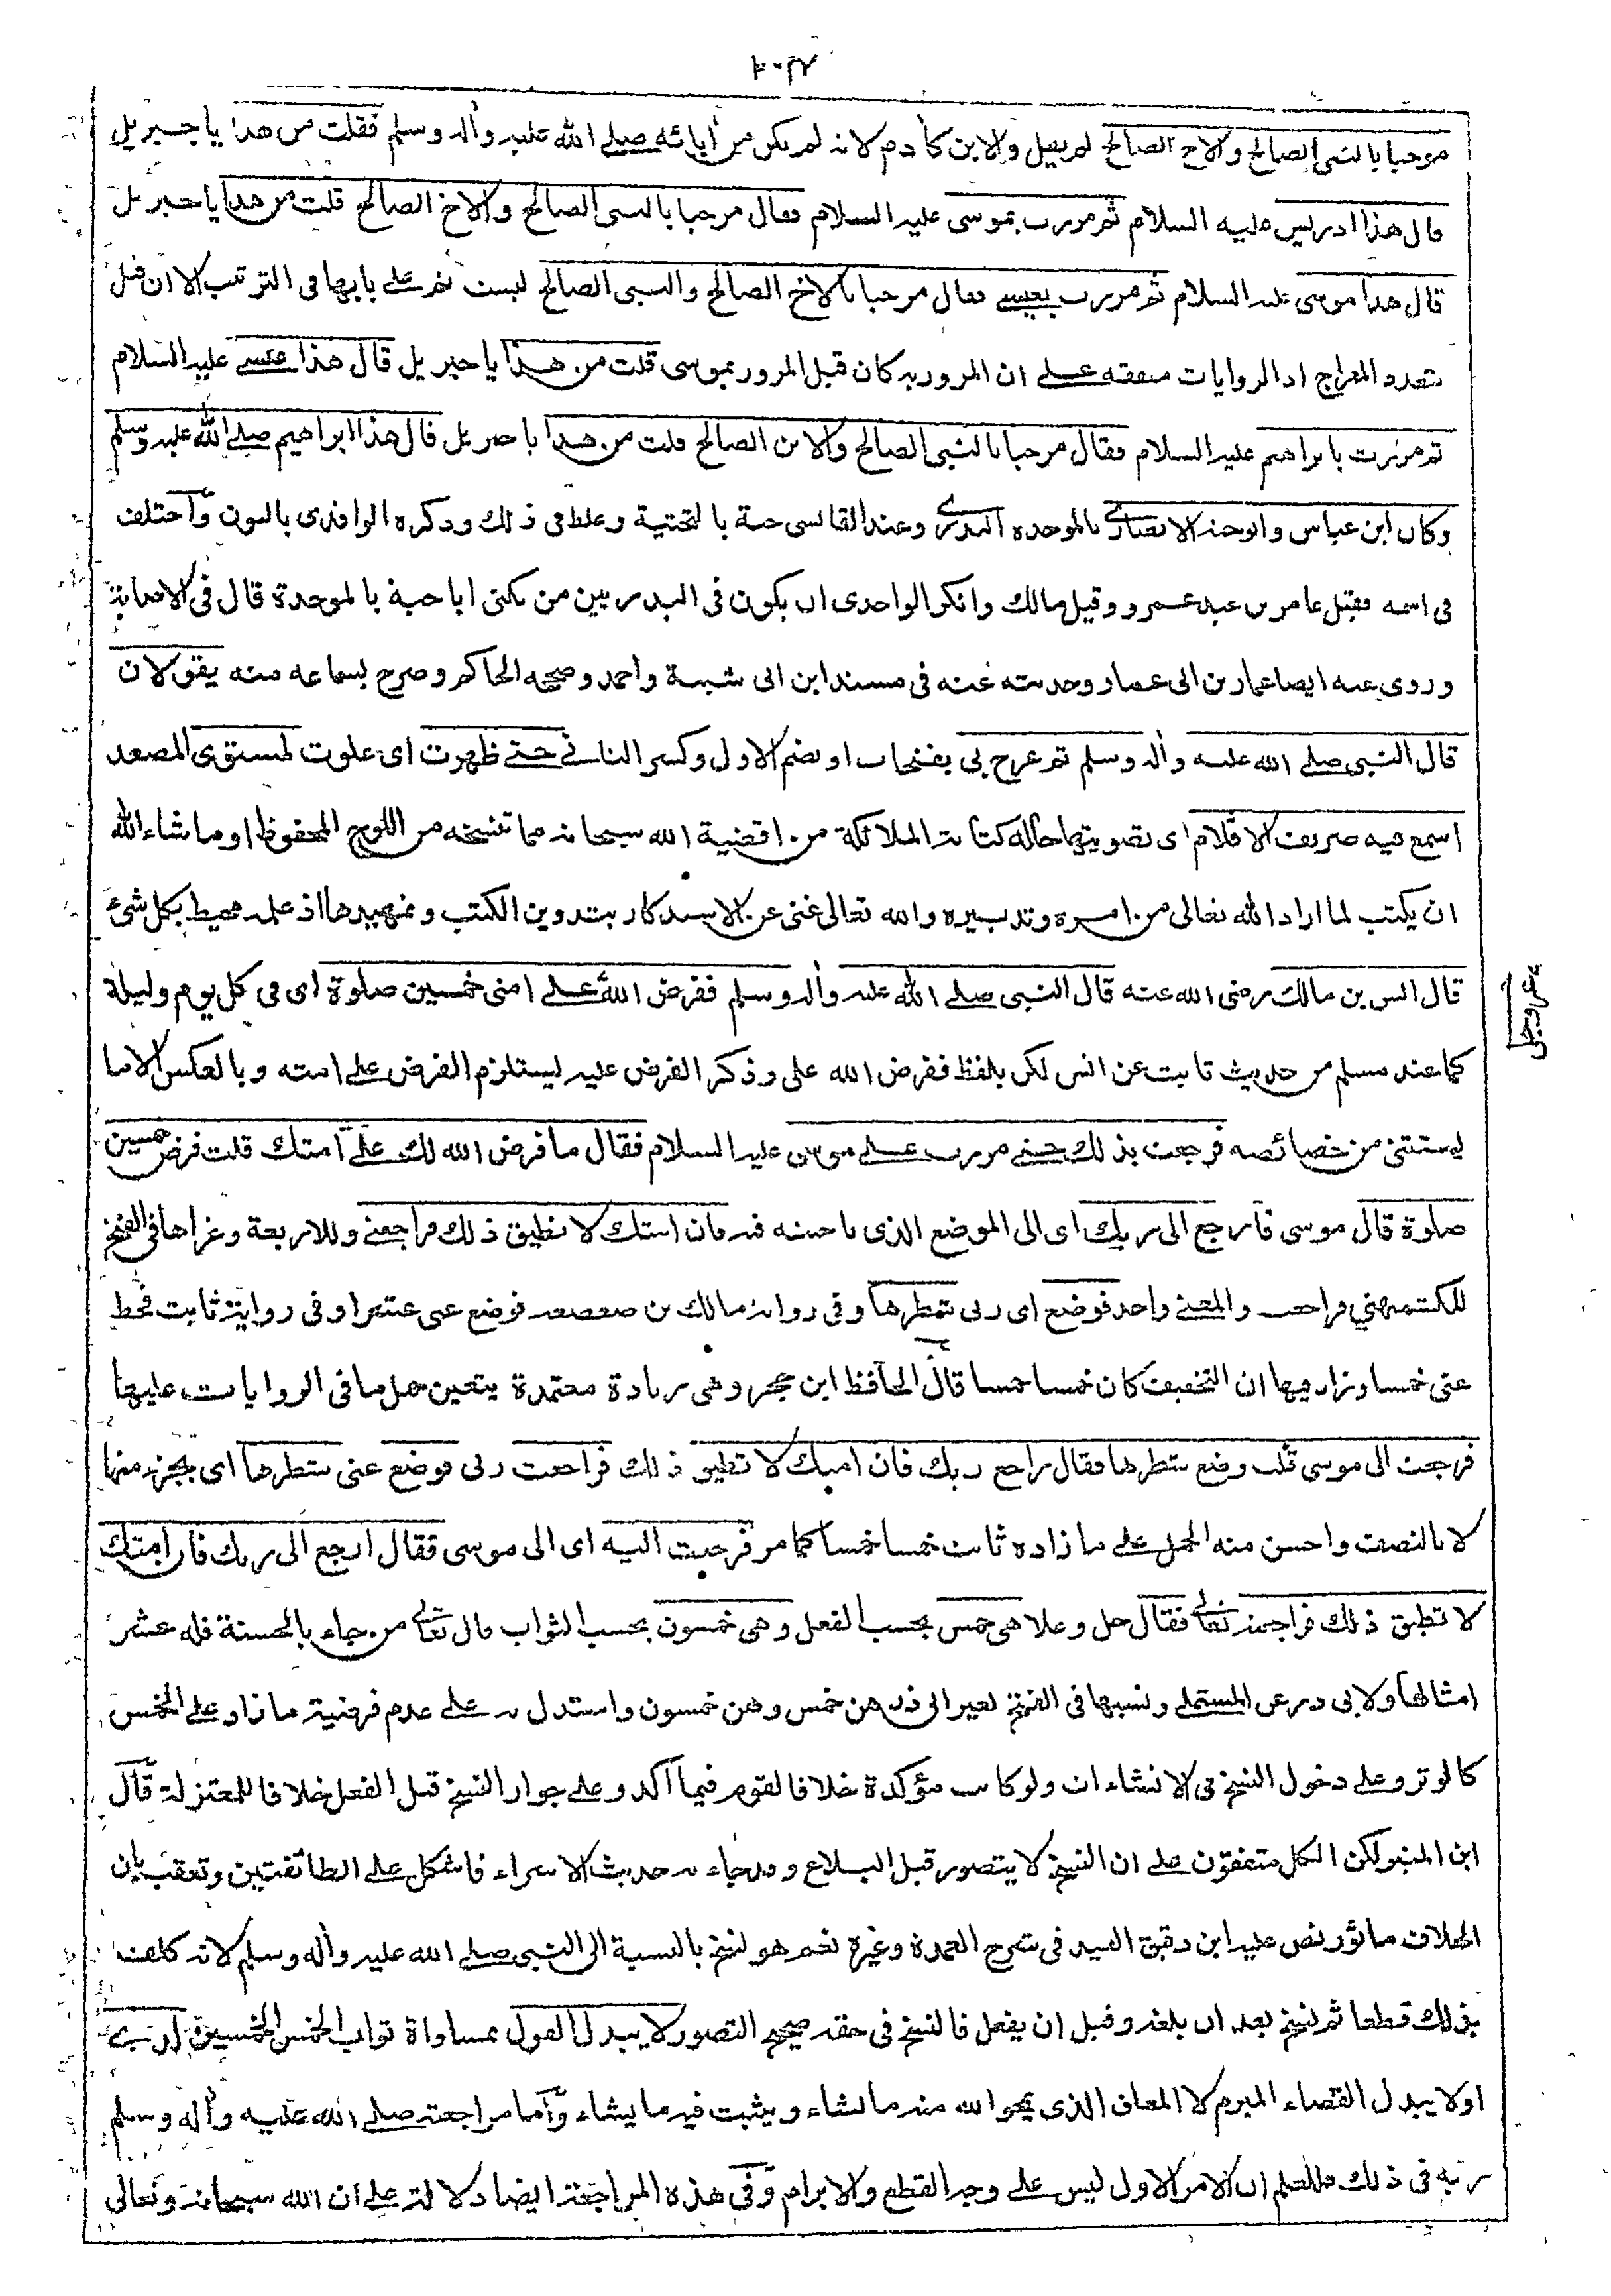 مرحبا بالنبى الصالح والاخ الصالح لم يقل والابن كآدم لانه لم يكن من آبائه صلى الله عليه وآله وسلم فقلت من هذا يا جبريل
قال هذا ادريس عليه السلام ثم مررت بموسى عليه السلام فقال مرحبا بالنبى الصالح والاخ الصالح قلت من هذا يا جبريل
قال هذا موسى عليه السلام ثم مررت بعيسى فقال مرحبا بالاخ الصالح والنبى الصالح ليست ثم على بابها فى الترتيب الا ان قيل
بتعدد المعراج اذ الروايات متفقة على ان المرور به كان قبل المرور بموسى قلت من هذا يا جبريل قال هذا عيسى عليه السلام
ثم مررت بابراهيم عليه السلام فقال مرحبا بالنبى الصالح والابن الصالح قلت من هذا يا جبريل قال هذا ابراهيم صلى الله عليه وسلم
وكان ابن عباس وابو حبة الانصارى بالموحدة البدرى وعند القابسى حية بالتحتية وغلط فى ذلك وذكره الواقدى بالنون وآختلف
فى اسمه فقيل عامر بن عبد عمرو وقيل مالك وانكر الواحدى ان يكون فى البدريين من يكنى ابا حبة بالموحدة قال فى الاصابة
وروى عنه ايضا عمار بن ابى عمار وحديثه عنه فى مسند ابن ابى شيبة واحمد وصححه الحاكم وصرح بسماعه منه يقولان
قال النبى صلى الله عليه وآله وسلم ثم عرج بى بفتحات او بضم الاول وكسر الثانى حتى ظهرت اى علوت لمستوى المصعد
اسمع فيه صريف الاقلام اى تصويتها حالة كتابة الملائكة من اقضية الله سبحانه مما تنسخه من اللوح المحفوظ او ما شاء الله
ان يكتب لما اراد الله تعالى من امره وتدبيره والله تعالى غنى عن الاستذكار بتدوين الكتب وتمهيدها اذ علمه محيط بكل شئ
قال انس بن مالك رضى الله عنه قال النبى صلى الله عليه وآله وسلم ففرض الله على امتى خمسين صلوة اى فى كل يوم وليلة
عز وجل
كما عند مسلم من حديث ثابت عن انس لكن بلفظ ففرض الله على وذكر الفرض عليه ليستلزم الفرض على امته وبالعكس الا ما
يستثنى من خصائصه فرجعت بذلك حتى مررت على موسى عليه السلام فقال ما فرض الله لك على امتك قلت فرض خمسين
صلوة قال موسى فارجع الى ربك اى الى الموضع الذى ناجيته فيه فان امتك لا تطيق ذلك فراجعنى وللاربعة وعزاها فى الفتح
للكشميهنى فراجعت والمعنى واحد فوضع اى ربى شطرها وفى رواية مالك بن صعصعة فوضع عنى عشرا وفى رواية ثابت فحط
عنى خمسا وزاد فيها ان التخفيف كان خمسا خمسا قال الحافظ ابن حجر وهى زيادة معتمدة يتعين حمل ما فى الروايات عليها
فرجعت الى موسى قلت وضع شطرها فقال راجع ربك فان امتك لا تطيق ذلك فراجعت ربى فوضع عنى شطرها اى بجزء منها
لا بالنصف واحسن منه الحمل على ما زاده ثابت خمسا خمسا كما مر فرجعت اليه اى الى موسى فقال ارجع الى ربك فان امتك
لا تطيق ذلك فراجعته تعالى فقال جل وعلا هى خمس بحسب الفعل وهى خمسون بحسب الثواب قال تعالى من جاء بالحسنة فله عشر
امثالها ولابى ذر عن المستملى ونسبها فى الفتح لغير ابى ذر هن خمس وهن خمسون واستدل به على عدم فرضية ما زاد على الخمس
كالوتر وعلى دخول النسخ فى الانشاءات ولو كانت مؤكدة خلافا لقوم فيما آكد وعلى جواز النسخ قبل الفعل خلافا للمعتزلة قال
ابن المنير لكن الكل متفقون على ان النسخ لا يتصور قبل البلاغ وقد جاء به حديث الاسراء فاشكل على الطائفتين وتعقب بان
الخلاف مأثور نص عليه ابن دقيق العيد فى شرح العمدة وغيره نعم هو نسخ بالنسبة الى النبى صلى الله عليه وآله وسلم لانه كلف
بذلك قطعا ثم نسخ بعد ان بلغه وقبل ان يفعل فالنسخ فى حقه صحيح التصور لا يبدل القول بمساواة ثواب الخمس الخمسين لدى
او لا يبدل القضاء المبرم لا المعلق الذى يمحو الله منه ما يشاء ويثبت فيه ما يشاء وآما مراجعته صلى الله عليه وآله وسلم
ربه فى ذلك فللعلم ان الامر الاول ليس على وجه القطع والابرام وفى هذه المراجعة ايضا دلالة على ان الله سبحانه وتعالى